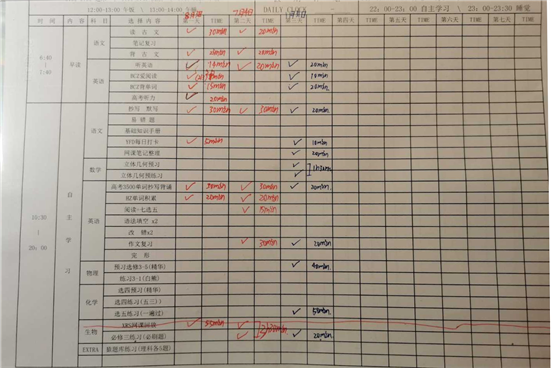 12:00-13:00 午餐 \ 13:00-14:00 午睡 DAILY CLOCK 23:00-23:30 自主学习 \ 23:00-23:30 睡觉
时间 内容 科目 选择内容 第一天 TIME 第二天 TIME 第三天 TIME 第四天 TIME 第五天 TIME 第六天 TIME 第七天 TIME
6:40
|
7:40
早读
语文
读古文 ✓ 10min ✓ 20min
笔记复习
背古文 ✓ 20min ✓ 20min
英语
听英语 ✓ ✓ 20min ✓ 20min
BCZ爱阅读 ✓ ✓ 10min
BCZ背单词 ✓ 15min ✓ 20min
高考听力 ✓ 20min
10:30
|
20:00
自主学习
语文
抄写 默写 ✓ 30min ✓ 30min ✓ 20min
易错题
基础知识手册
YYD每日打卡 ✓ ✓ 10min
网课笔记整理 ✓ 20min
数学
立体几何预习 ✓
立体几何预练习 ✓
英语
高考3500单词抄写背诵 ✓ 30min ✓ 30min ✓ 20min
HZ单词积累 ✓ 20min ✓ 20min
阅读+七选五 ✓ 15min
语法填空 x2
改错x2
作文复习 ✓ 30min ✓ 20min
完形
物理
预习选修3-5(精华)  ✓ 40min
练习3-1(白熊)
化学
选四预习(精华)
选四练习(五三)
选五练习(一遍过) ✓ 50min
生物
✓ 35min ✓
必修三练习(必刷题) ✓ ✓ 20min
EXTRA